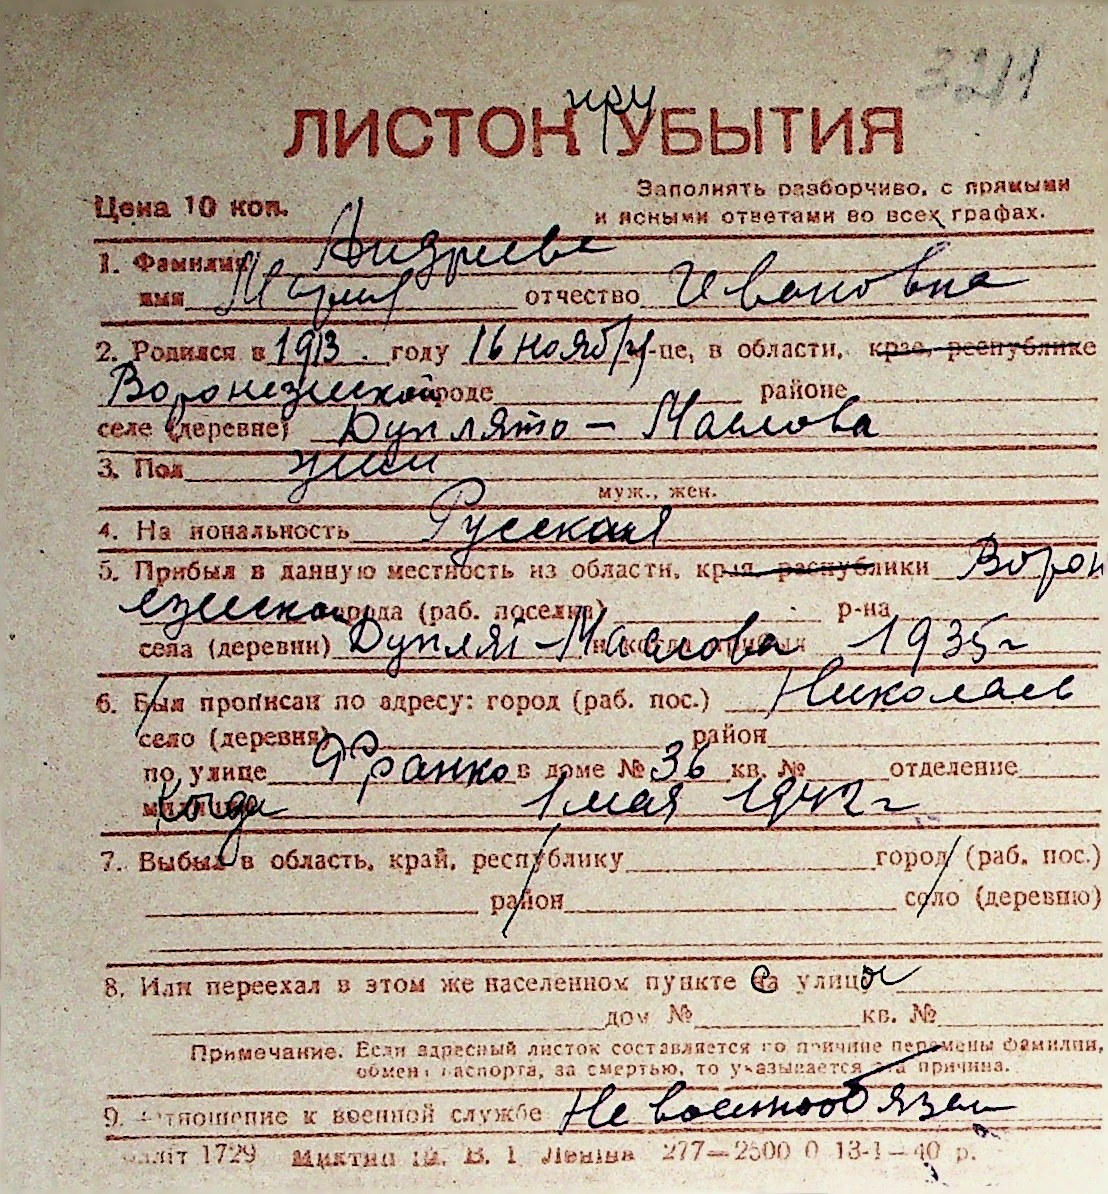 3211
при
ЛИСТОК УБЫТИЯ
Цена 10 коп.
Заполнять разборчиво, с прямыми
и ясными ответами во всех графах.
1. Фамилия Андреева
имя Мария отчество Ивановна
2. Родился в 1913. году 16 ноября м-це, в области, крае, республике
Воронежской городе районе
селе (деревне) Дуплято - Маслова
3. Пол жен
муж., жен.
4. На иональность Русская
5. Прибыл в данную местность из области, края, республики Ворон
ежской города (раб. поселка) р-на
села (деревни) Дупляй - Маслова и когда прибыл 1935 г
6. Был прописан по адресу: город (раб. пос.) Николаев
село (деревня) район
по улице Франко в доме № 36 кв. № отделение
милиции Когда 1 мая 1942 г
7. Выбыл в область, край, республику город (раб. пос.)
район село (деревню)
8. Или переехал в этом же населенном пункте на с улицы
дом № кв. №
Примечание. Если адресный листок составляется по причине перемены фамилии,
обмена паспорта, за смертью, то указывается эта причина.
9. Отношение к военной службе Не военнообязан
1729 В. І. Леніна 277—2500 0 13-1—40 р.